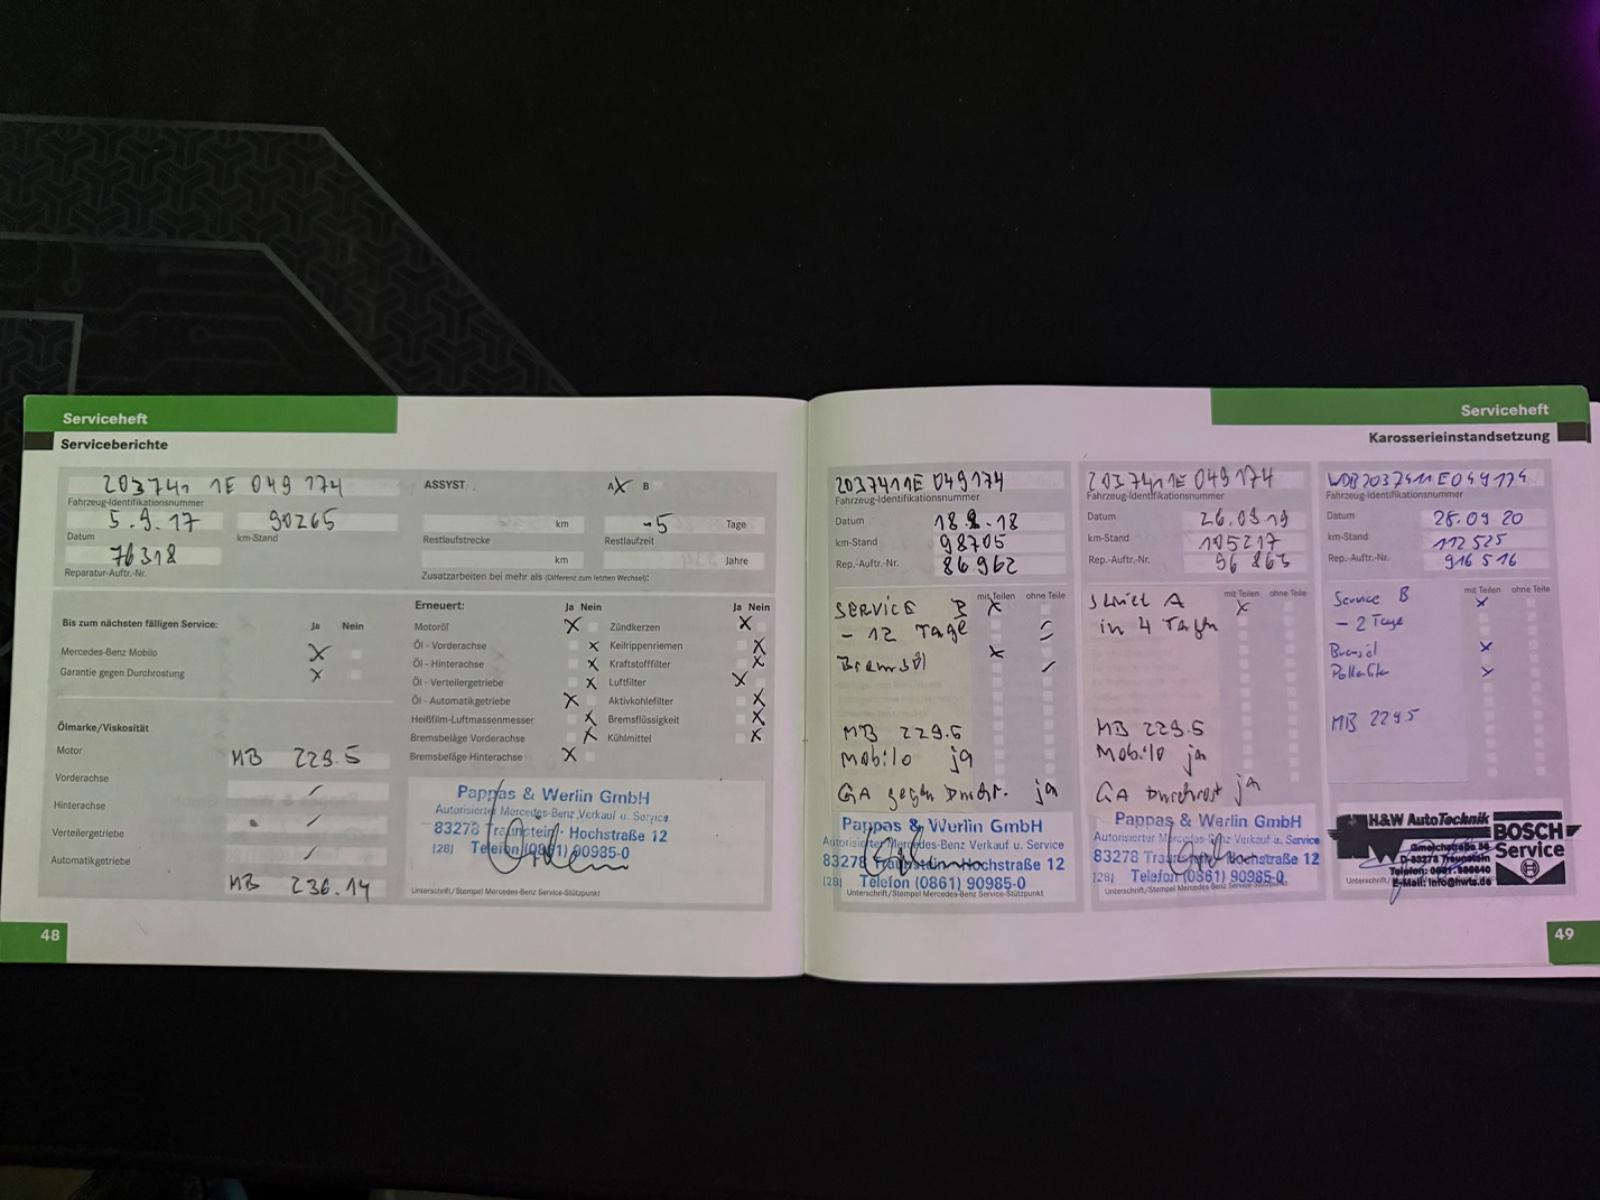 Serviceheft
Serviceberichte
203741 1E 049 174
Fahrzeug-Identifikationsnummer
5.9.17 90265
Datum km-Stand
76318
Reparatur-Auftr.-Nr.
ASSYST A X B
km -5 Tage
Restlaufstrecke Restlaufzeit
km Jahre
Zusatzarbeiten bei mehr als (Differenz zum letzten Wechsel):
Bis zum nächsten fälligen Service: Ja Nein
Mercedes-Benz Mobilo X
Garantie gegen Durchrostung X
Ölmarke/Viskosität
Motor MB 229.5
Vorderachse /
Hinterachse /
Verteilergetriebe /
Automatikgetriebe MB 236.14
Erneuert: Ja Nein Ja Nein
Motoröl X Zündkerzen X
Öl - Vorderachse X Keilrippenriemen X
Öl - Hinterachse X Kraftstofffilter X
Öl - Verteilergetriebe X Luftfilter X
Öl - Automatikgetriebe X Aktivkohlefilter X
Heißfilm-Luftmassenmesser X Bremsflüssigkeit X
Bremsbeläge Vorderachse X Kühlmittel X
Bremsbeläge Hinterachse X
Pappas & Werlin GmbH
Autorisierter Mercedes-Benz Verkauf u. Service
83278 Traunstein · Hochstraße 12
[28] Telefon (0861) 90985-0
Unterschrift/Stempel Mercedes-Benz Service-Stützpunkt
48
Serviceheft
Karosserieinstandsetzung
2037411E 049174
Fahrzeug-Identifikationsnummer
Datum 18.9.18
km-Stand 98705
Rep.-Auftr.-Nr. 86962
mit Teilen ohne Teile
SERVICE B X
- 12 TAGE
Bremsöl
MB 229.5
Mobilo ja
GA gegen Durchr. ja
Pappas & Werlin GmbH
Autorisierter Mercedes-Benz Verkauf u. Service
83278 Traunstein Hochstraße 12
[28] Telefon (0861) 90985-0
Unterschrift/Stempel Mercedes-Benz Service-Stützpunkt
2037411E 049174
Fahrzeug-Identifikationsnummer
Datum 26.09.19
km-Stand 105217
Rep.-Auftr.-Nr. 96863
mit Teilen ohne Teile
Service A X
in 4 Tagen
MB 229.5
Mobilo ja
GA Durchrost ja
Pappas & Werlin GmbH
Autorisierter Mercedes-Benz Verkauf u. Service
83278 Traunstein Hochstraße 12
[28] Telefon (0861) 90985-0
Unterschrift/Stempel Mercedes-Benz Service-Stützpunkt
WDB2037411E049174
Fahrzeug-Identifikationsnummer
Datum 28.09.20
km-Stand 112525
Rep.-Auftr.-Nr. 916516
mit Teilen ohne Teile
Service B X
- 2 Tage
Bremsöl X
Pollenfilter X
MB 229.5
H&W AutoTechnik
BOSCH
Service
D-83278 Traunstein
E-Mail: info@hwts.de
49